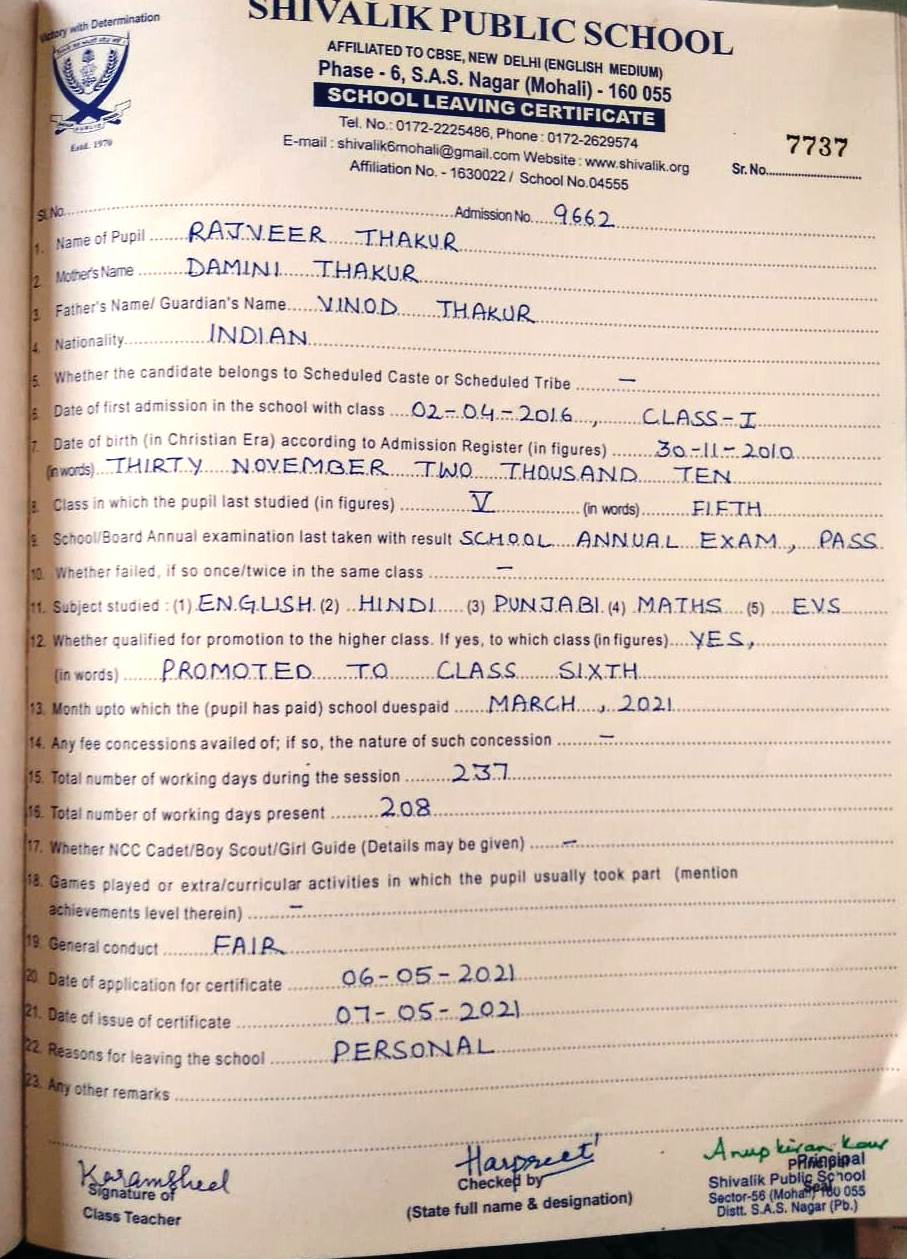 Victory with Determination
SHIVALIK PUBLIC SCHOOL
AFFILIATED TO CBSE, NEW DELHI (ENGLISH MEDIUM)
Phase - 6, S.A.S. Nagar (Mohali) - 160 055
SCHOOL LEAVING CERTIFICATE
PUBLIC
Estd. 1970
Tel. No.: 0172-2225486, Phone : 0172-2629574
E-mail : shivalik6mohali@gmail.com Website : www.shivalik.org
Affiliation No. - 1630022 / School No.04555
Sr. No. 7737
Sl.No. Admission No. 9662
1. Name of Pupil RAJVEER THAKUR
2. Mother's Name DAMINI THAKUR
3. Father's Name/ Guardian's Name VINOD THAKUR
4. Nationality INDIAN
5. Whether the candidate belongs to Scheduled Caste or Scheduled Tribe —
6. Date of first admission in the school with class 02-04-2016, CLASS-I
7. Date of birth (in Christian Era) according to Admission Register (in figures) 30-11-2010
(in words) THIRTY NOVEMBER TWO THOUSAND TEN
8. Class in which the pupil last studied (in figures) V (in words) FIFTH
9. School/Board Annual examination last taken with result SCHOOL ANNUAL EXAM, PASS
10. Whether failed, if so once/twice in the same class —
11. Subject studied : (1) ENGLISH (2) HINDI (3) PUNJABI (4) MATHS (5) EVS
12. Whether qualified for promotion to the higher class. If yes, to which class (in figures) YES,
(in words) PROMOTED TO CLASS SIXTH
13. Month upto which the (pupil has paid) school duespaid MARCH, 2021
14. Any fee concessions availed of; if so, the nature of such concession —
15. Total number of working days during the session 237
16. Total number of working days present 208
17. Whether NCC Cadet/Boy Scout/Girl Guide (Details may be given) —
18. Games played or extra/curricular activities in which the pupil usually took part (mention
achievements level therein) —
19. General conduct FAIR
20. Date of application for certificate 06-05-2021
21. Date of issue of certificate 07-05-2021
22. Reasons for leaving the school PERSONAL
23. Any other remarks
Karamsheel
Signature of
Class Teacher
Harpreet
Checked by
(State full name & designation)
Anupkiran Kaur
Principal
Principal
Shivalik Public School
Seal
Sector-56 (Mohali) 160 055
Distt. S.A.S. Nagar (Pb.)